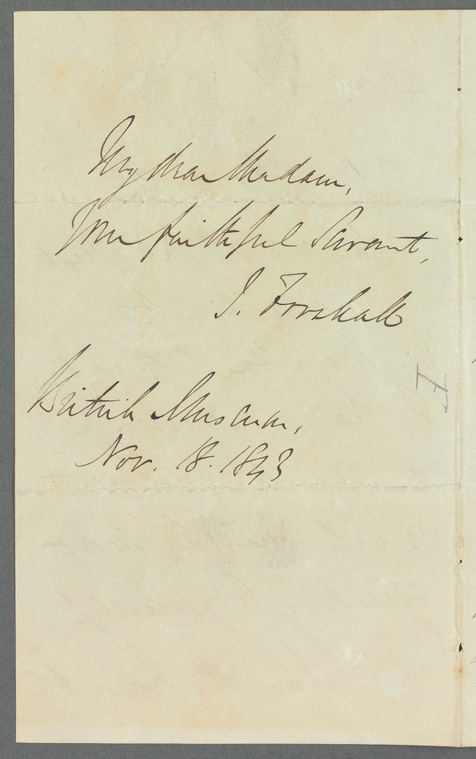 My dear Madam,
Your faithful Servant,
J. Forshall
British Museum,
Nov. 18. 1843